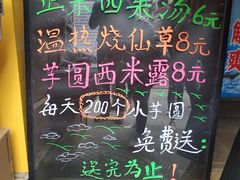 芒果西米汤6元
温热烧仙草8元
芋圆西米露8元
每天200个小芋圆
免费送:
送完为止!